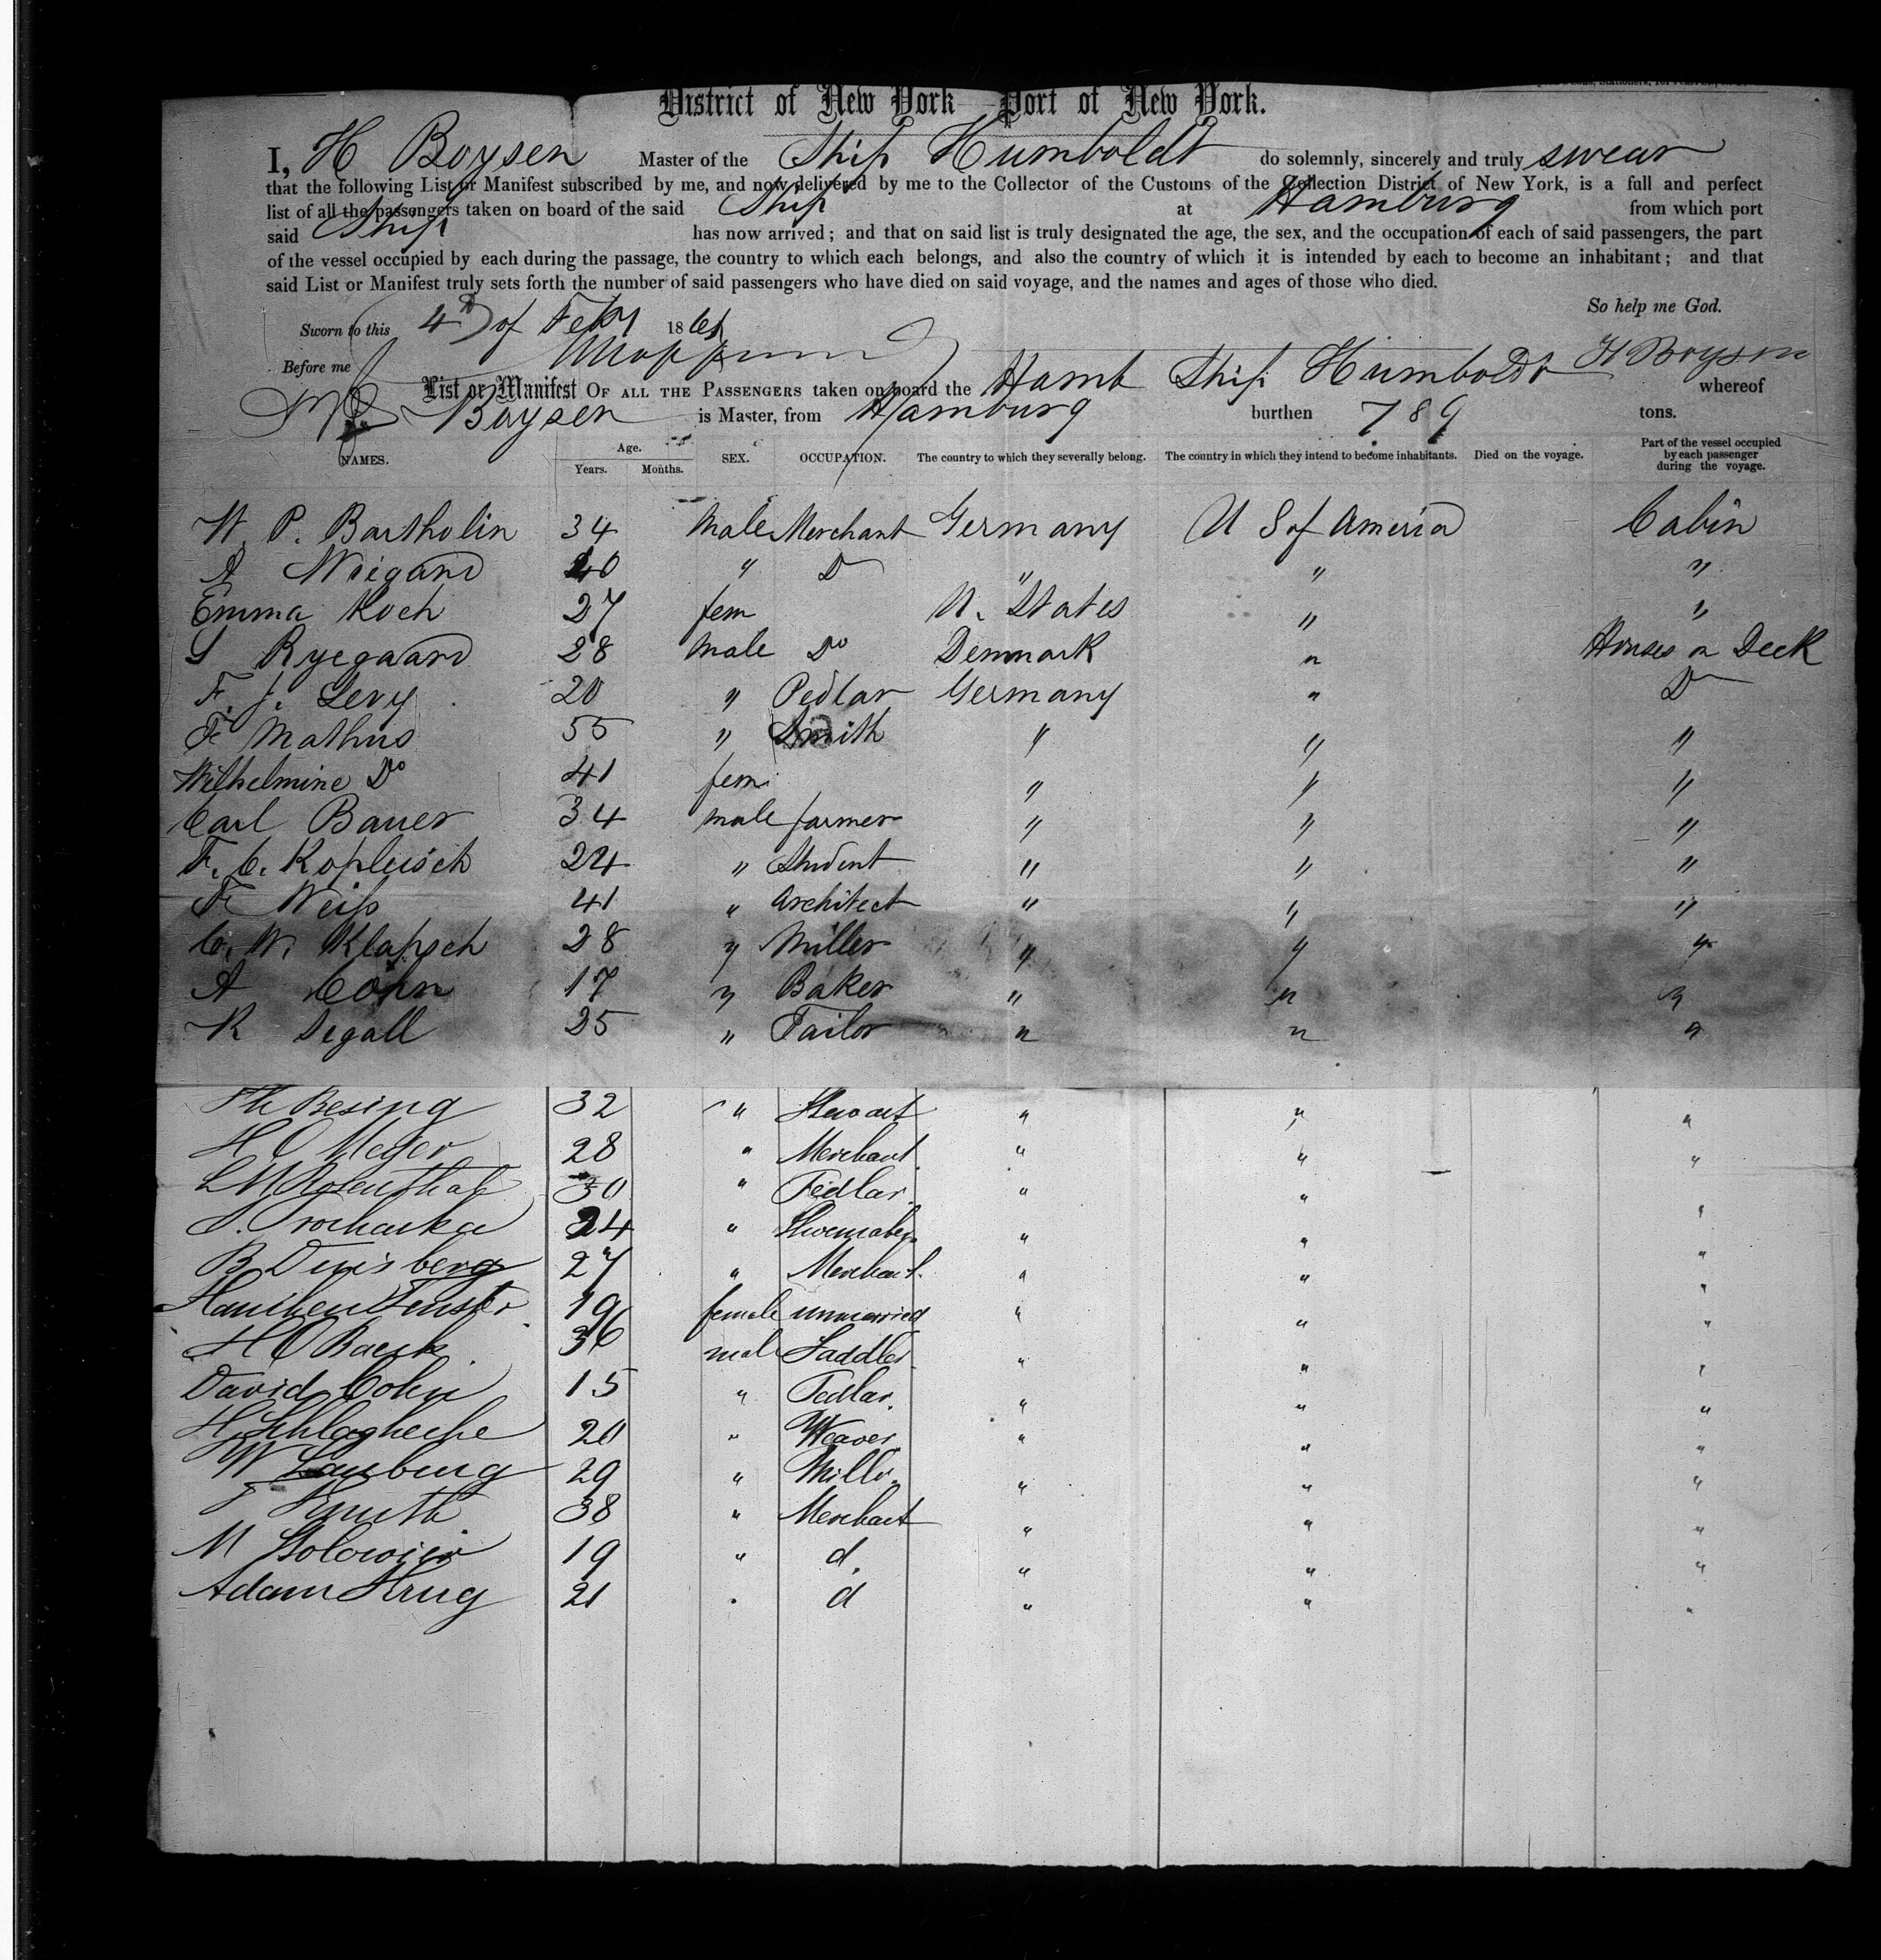 District of New York Port of New York.
I, H Boysen Master of the Ship Humboldt do solemnly, sincerely and truly swear
that the following List or Manifest subscribed by me, and now delivered by me to the Collector of the Customs of the Collection District of New York, is a full and perfect
list of all the passengers taken on board of the said Ship at Hamburg from which port
said Ship has now arrived; and that on said list is truly designated the age, the sex, and the occupation of each of said passengers, the part
of the vessel occupied by each during the passage, the country to which each belongs, and also the country of which it is intended by each to become an inhabitant; and that
said List or Manifest truly sets forth the number of said passengers who have died on said voyage, and the names and ages of those who died.
So help me God.
Sworn to this 4th of Feby 1861
Before me H Boysen
List or Manifest OF ALL THE PASSENGERS taken on board the Hamb Ship Humboldt whereof
Boysen is Master, from Hamburg burthen 789 tons.
NAMES. Age. Years. Months. SEX. OCCUPATION. The country to which they severally belong. The country in which they intend to become inhabitants. Died on the voyage. Part of the vessel occupied by each passenger during the voyage.
W. P. Bartholin 34 Male Merchant Germany U S of America Cabin
A Weigand 40 " Do " " "
Emma Koch 27 fem U. States " "
S Ryegaard 28 Male Do Denmark " Houses on Deck
F. J. Levy 20 " Pedlar Germany " Do
Fr Mathus 55 " Smith " " "
Wilhelmine Do 41 fem " " "
Carl Bauer 34 male farmer " " "
F. C. Kopleisch 24 " Student " " "
Fr Weiß 41 " Architect " " "
C. W. Klapsch 28 " Miller " " "
A Cohn 17 " Baker " " "
R Segall 25 " Tailor " " "
Th Besing 32 " " " "
H C Meyer 28 " Merchant " " "
L M Rosenthal 30 " Pedlar. " " "
S. Prochaska 24 " Shoemaker " " "
B 27 " Merchant. " " "
19 female unmarried " " "
H C Baack 36 male Saddler " " "
David Cohn 15 " Pedlar. " " "
H. 20 " Weaver " " "
W 29 " Miller. " " "
F Smith 38 " Merchant " " "
M 19 " d. " " "
Adam Krug 21 " d " " "